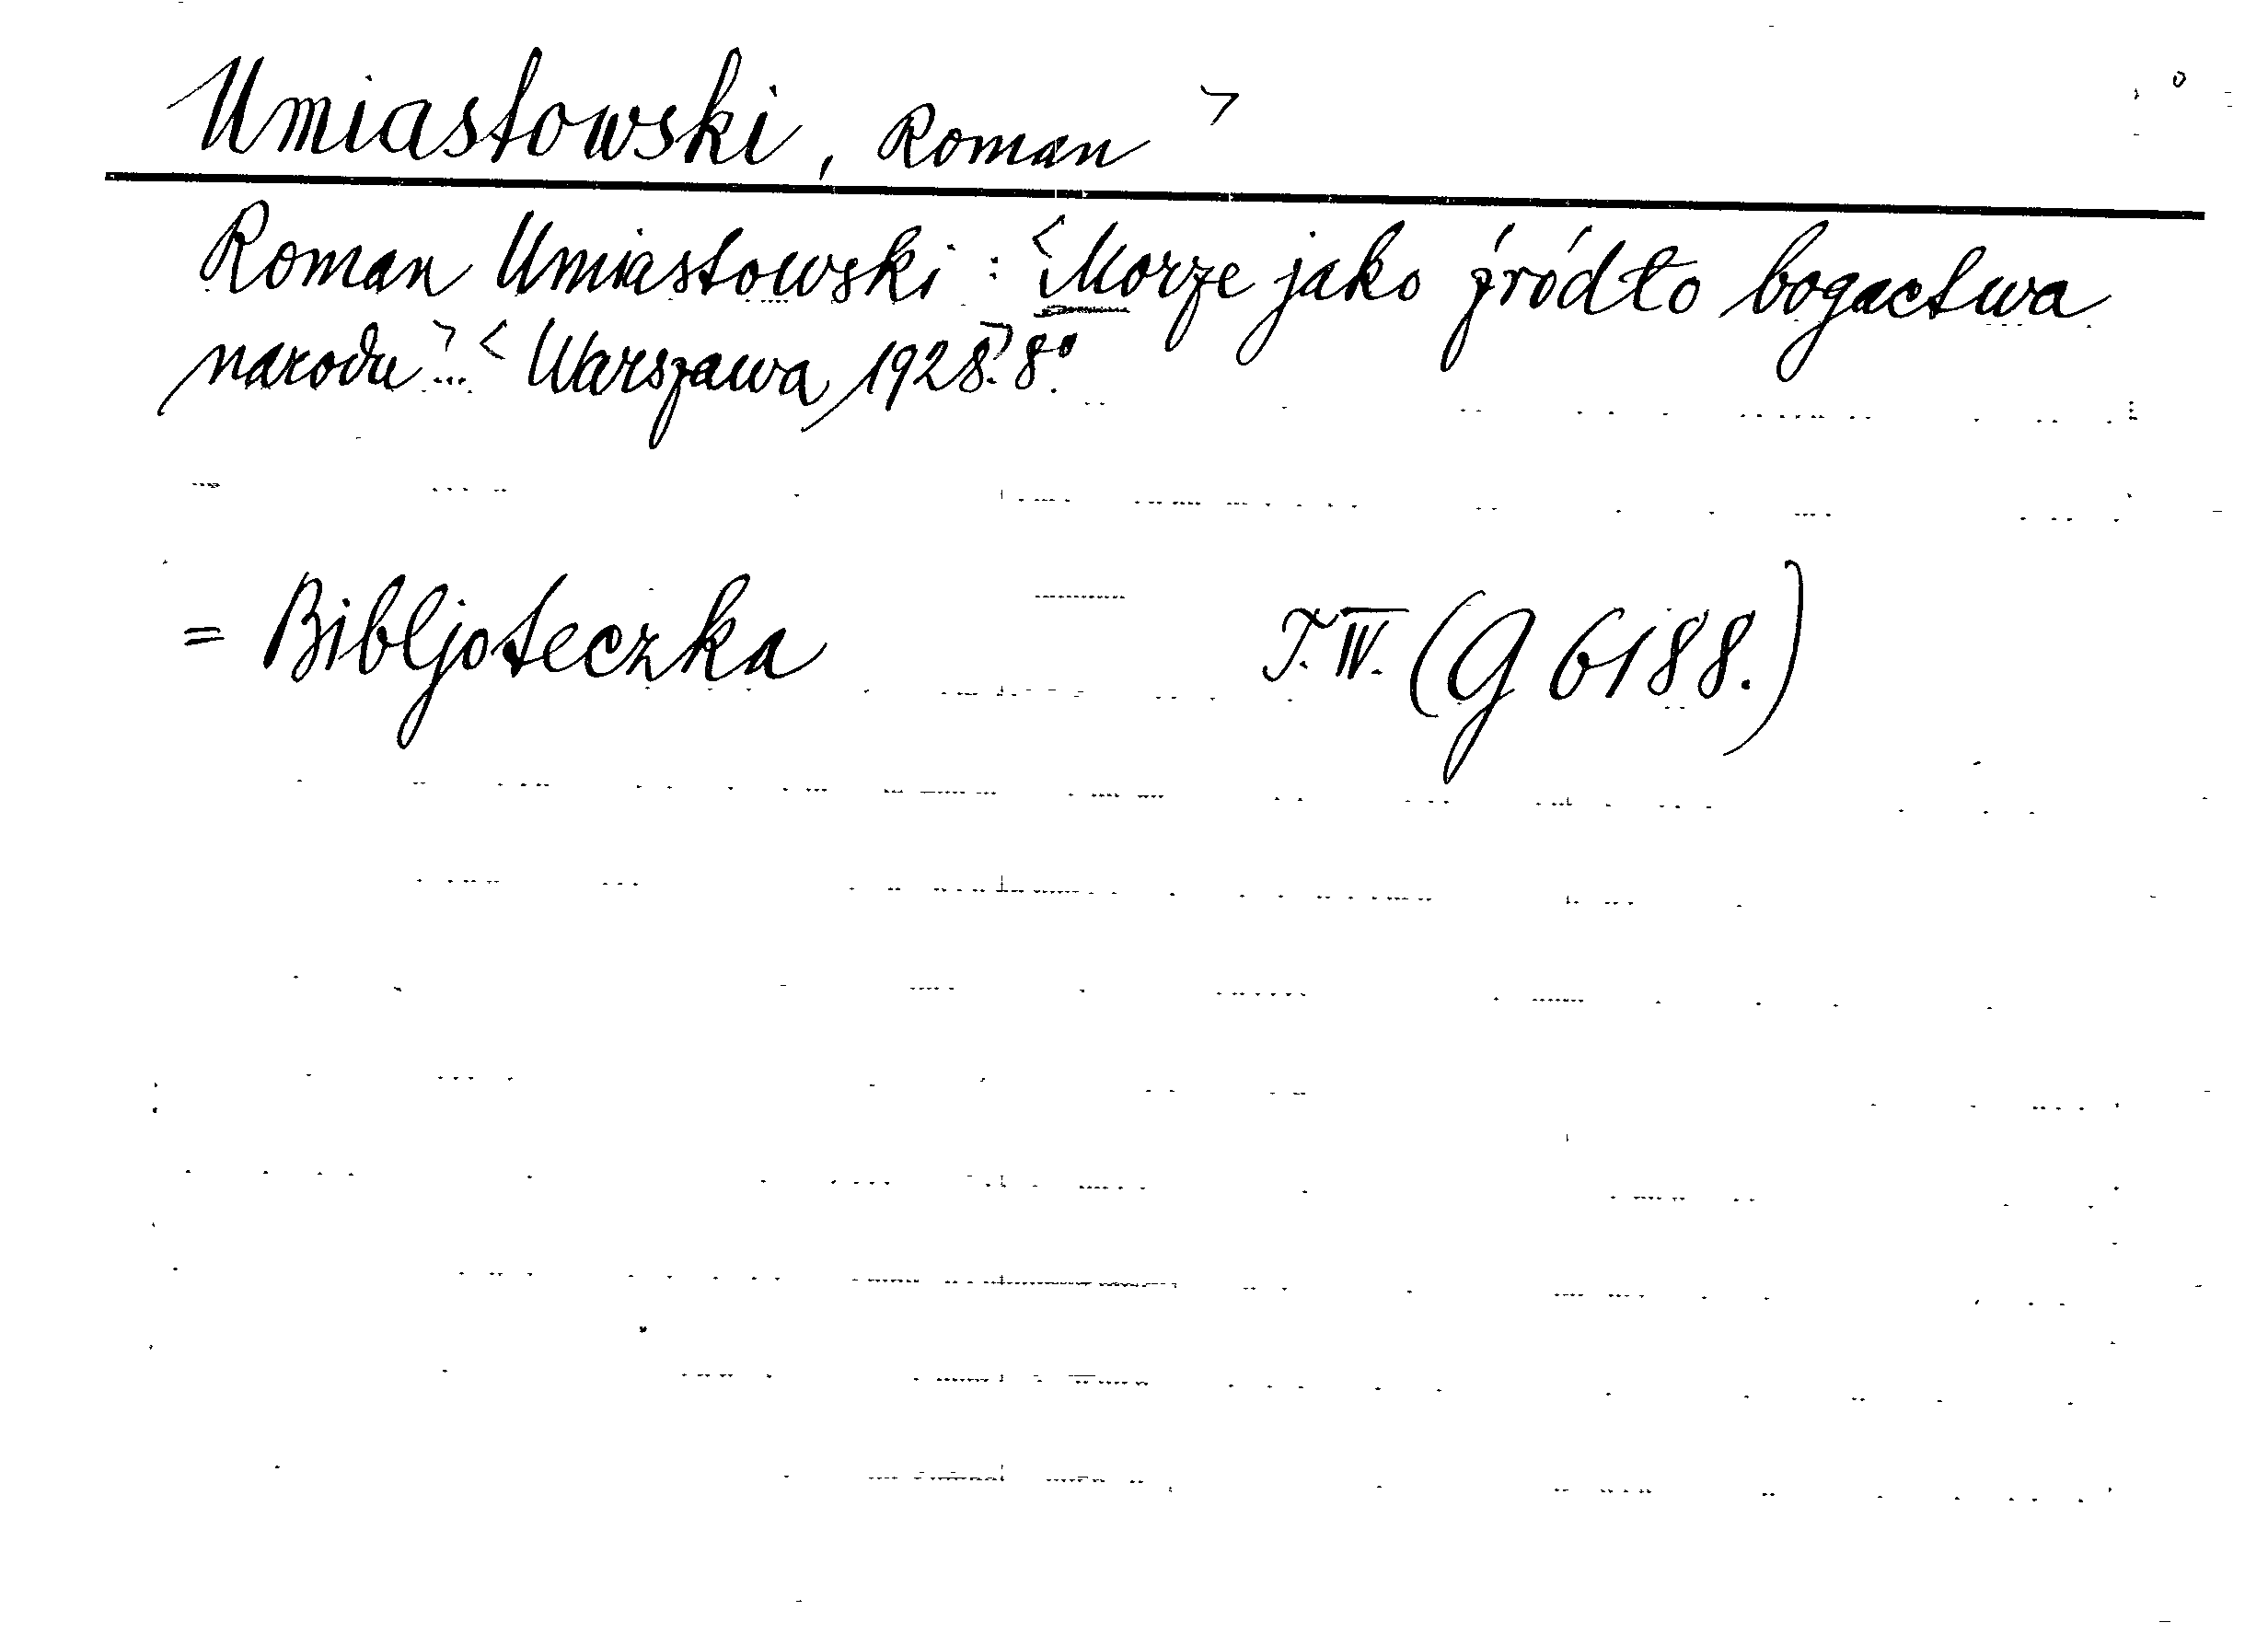 Umiastowski, Roman >
Roman Umiastowski : <Morze jako źródło bogactwa
narodu>... <Warszawa, 1928.> 8º.
= Bibljoteczka T. IV. (G 6188.)